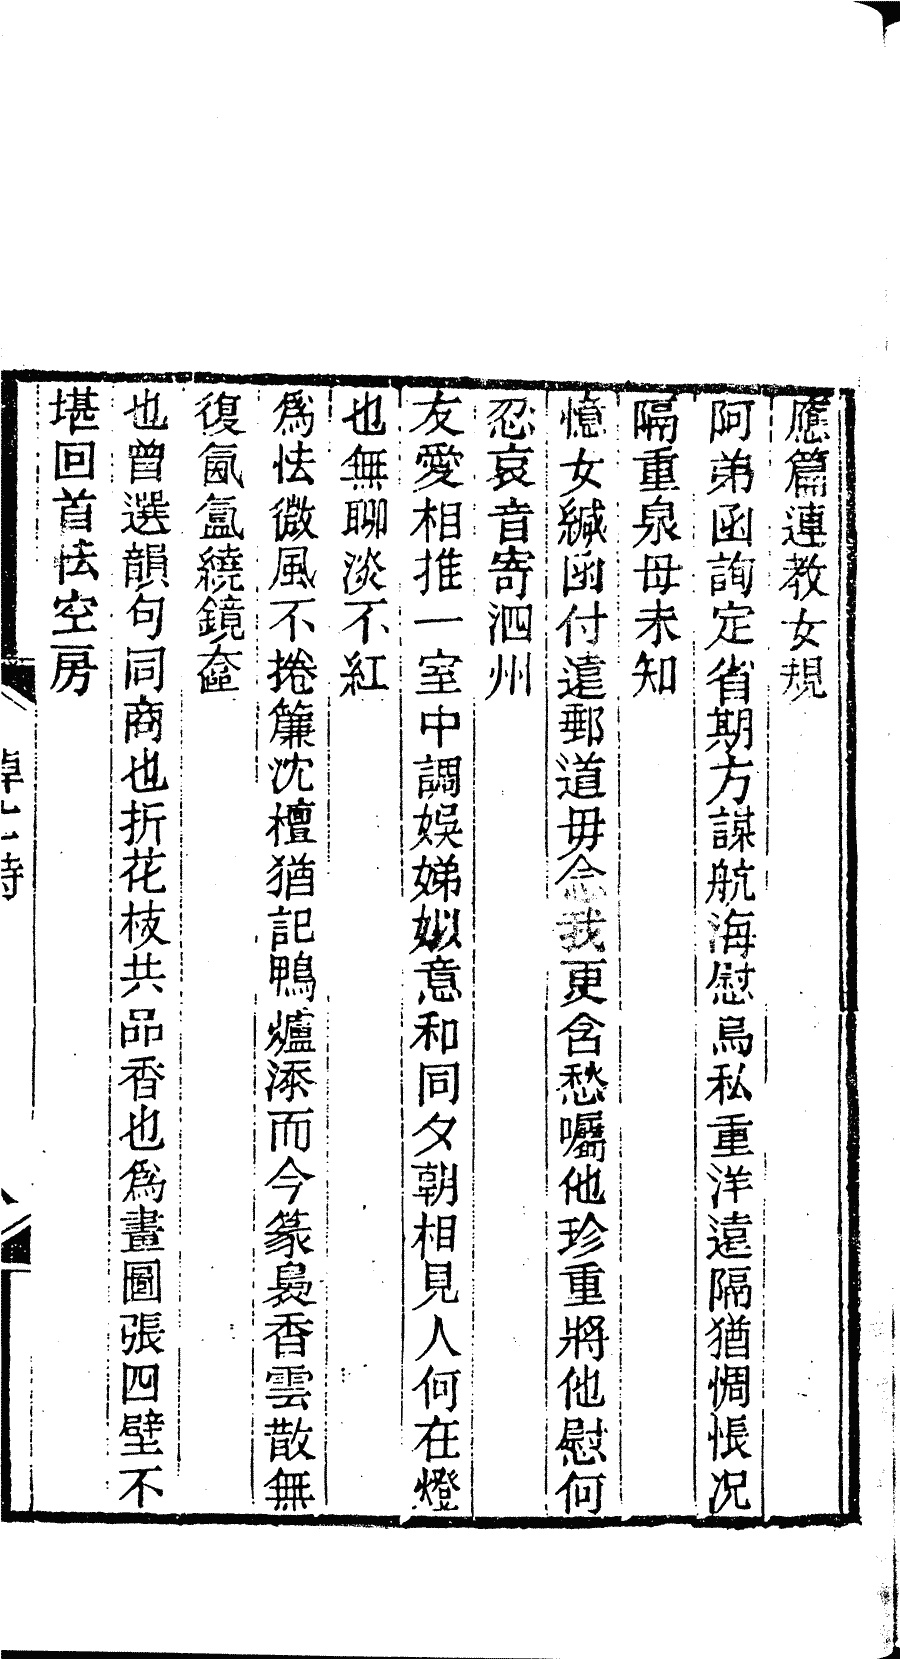 應篇連教女規
阿弟函詢定省期方謀航海慰烏私重洋遠隔猶惆悵况
隔重泉母未知
憶女緘函付遠郵道毋念我更含愁囑他珍重將他慰何
忍哀音寄泗州
友愛相推一室中調娛娣姒意和同夕朝相見人何在燈
也無聊淡不紅
爲怯微風不捲簾沈檀猶記鴨爐添而今篆裊香雲散無
復氤氳繞鏡奩
也曾選韻句同商也折花枝共品香也爲畫圖張四壁不
堪回首怯空房